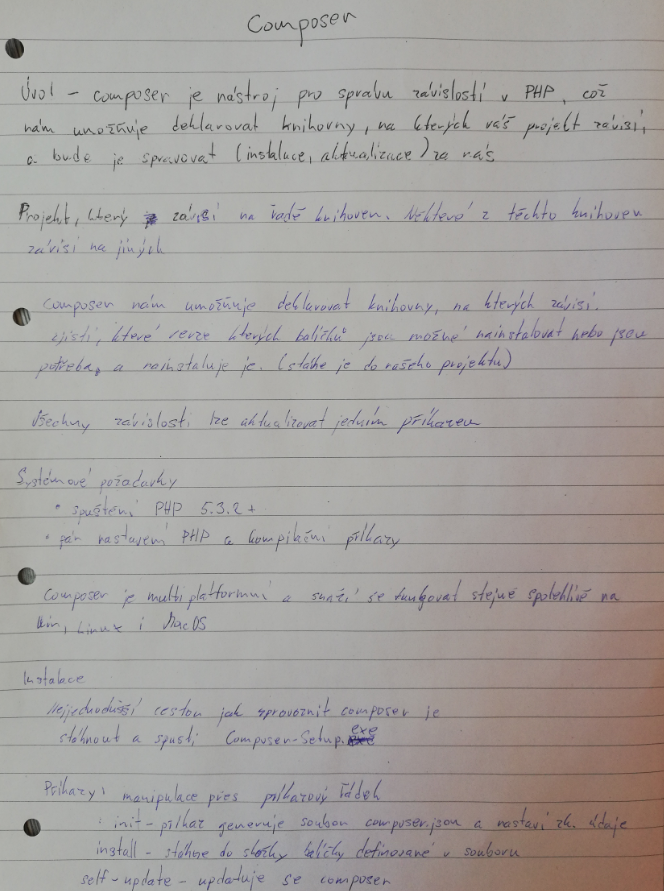 Composer
Úvod - composer je nástroj pro spravu závislostí v PHP, což
nám umožňuje deklarovat knihovny, na kterých váš projekt závisí,
a bude je spravovat (instalace, aktualizace) za nás
Projekt, který závisí na řadě knihoven. Některé z těchto knihoven
závisí na jiných
Composer nám umožňuje deklarovat knihovny, na kterých závisí.
zjistí, které verze kterých balíčků jsou možné nainstalovat nebo jsou
potřeba, a nainstaluje je. (stáhne je do vašeho projektu)
Všechny závislosti lze aktualizovat jedním příkazem
Systémové požadavky
• spuštění PHP 5.3.2 +
• pár nastavení PHP a kompilační příkazy
Composer je multiplatformní a snaží se fungovat stejně spolehlivě na
Win, Linux i MacOS
Instalace
Nejjednodušší cestou jak zprovoznit composer je
stáhnout a spustí Composer-Setup.exe
Příkazy: manipulace přes příkazový řádek
: init - příkaz generuje soubor composer.json a nastaví zk. údaje
install - stáhne do složky balíčky definované v souboru
self-update - updatuje se composer